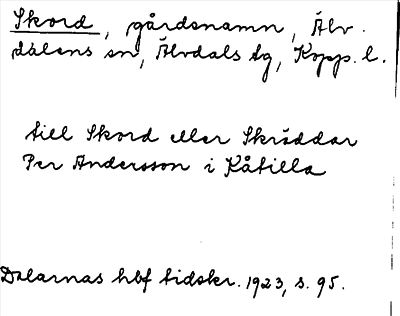 Skord, gårdsnamn, Älv-
dalens sn, Älvdals tg, Kopp. l.
till Skord eller Skräddar
Per Andersson i Kåtilla
Dalarnas hbf tidskr. 1923, s. 95.